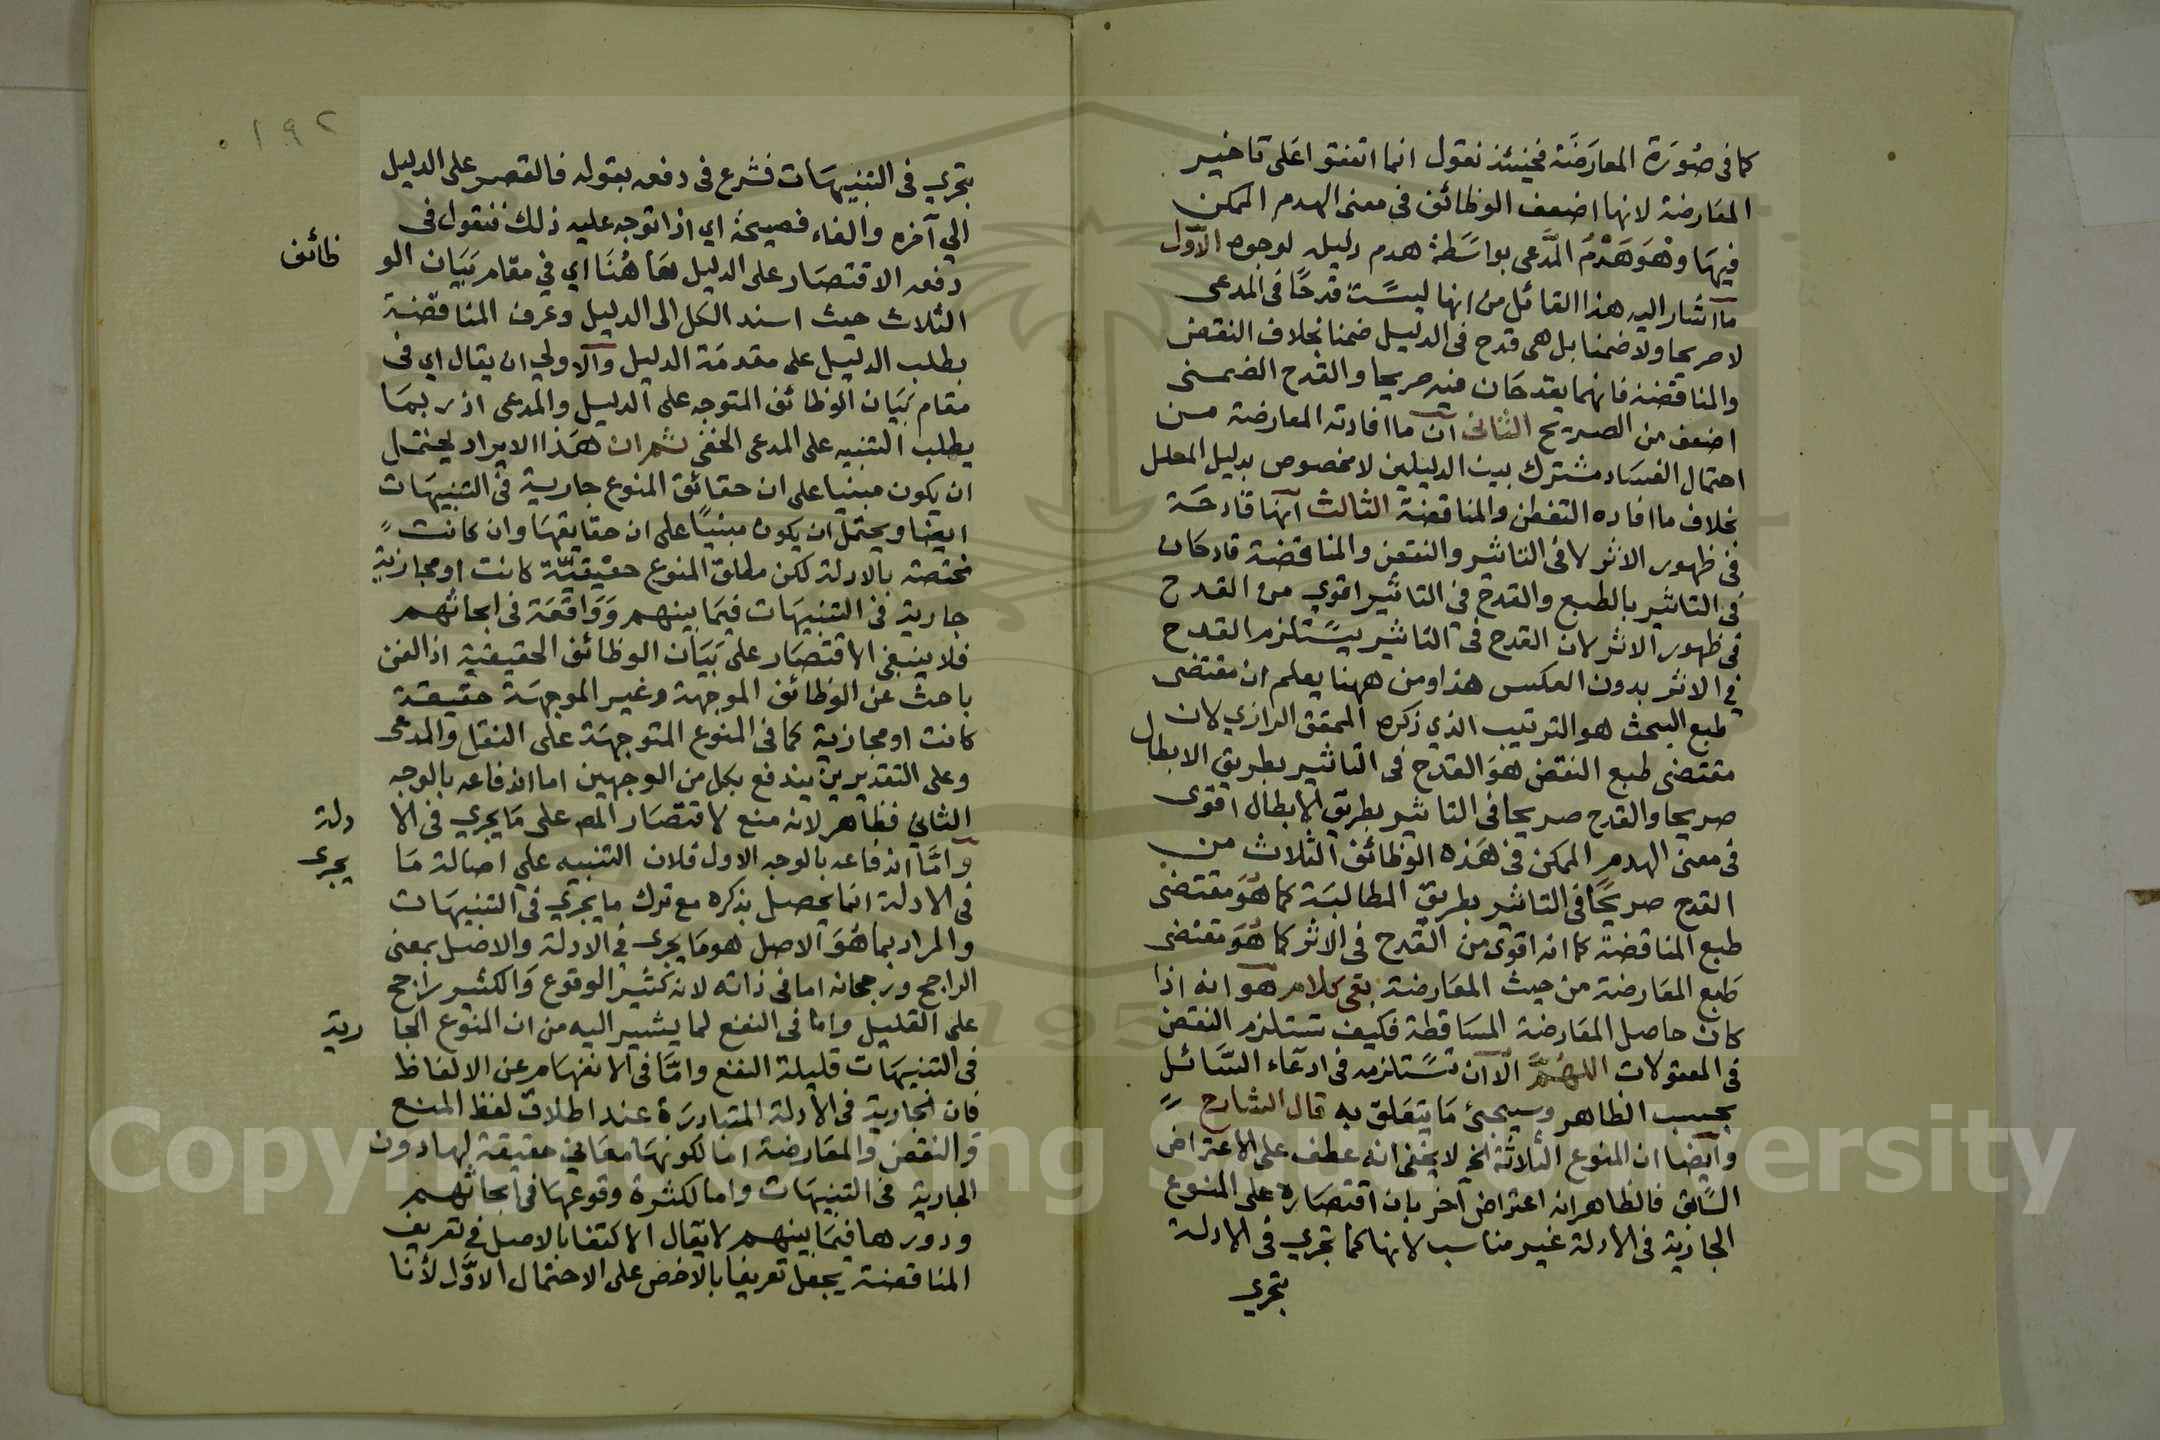 كما فى صورة المعارضة فحينئذ نقول انما اتفقوا على تاخير
المعارضة لانها اضعف الوظائف في معنى الهدم الممكن
فيها وهو هدم المدعى بواسطة هدم دليله لوجوه الاول
ما اشار اليه هذا القائل من انها ليست قدحا فى المدعى
لا صريحا ولا ضمنا بل هى قدح فى الدليل ضمنا بخلاف النقض
والمناقضة فانهما يقدحان فيه صريحا والقدح الضمنى
اضعف من الصريح الثانى ان ما افادته المعارضة من
احتمال الفساد مشترك بين الدليلين لا مخصوص بدليل المعلل
بخلاف ما افاده النقض والمناقضة الثالث انها قادحة
فى ظهور الاثر لا فى التاثير والنقض والمناقضة قادحان
فى التاثير بالطبع والقدح في التاثير اقوي من القدح
فى ظهور الاثر لان القدح فى التاثير يستلزم القدح
في الاثر بدون العكس هذا ومن ههنا يعلم ان مقتضى
طبع البحث هو الترتيب الذي ذكره المحقق الرازي لان
مقتضى طبع النقض هو القدح فى التاثير بطريق الابطال
صريحا والقدح صريحا فى التاثير بطريق الابطال اقوى
فى معنى الهدم الممكن فى هذه الوظائف الثلاث من
القدح صريحا فى التاثير بطريق المطالبة كما هو مقتضى
طبع المناقضة كما انه اقوى من القدح فى الاثر كما هو مقتضى
طبع المعارضة من حيث المعارضة بقى كلام هو انه اذا
كان حاصل المعارضة المساقطة فكيف تستلزم النقض
فى المعقولات اللهم الا ان تستلزمه فى ادعاء السائل
بحسب الظاهر وسيجئ ما يتعلق به قال الشارح
وايضا ان المنوع الثلاثة الخ لا يخفى انه عطف على الاعتراض
السابق فالظاهر انه اعتراض آخر بان اقتصاره على المنوع
الجارية فى الادلة غير مناسب لانها كما تجري فى الادلة
تجري
١٩٢
تجري فى التنبيهات فشرع فى دفعه بقوله فالقصر على الدليل
الي آخره والفاء فصيحة اي اذا توجه عليه ذلك فنقول فى
دفعه الاقتصار على الدليل هاهنا اي في مقام بيان الو ظائف
الثلاث حيث اسند الكل الى الدليل وعرف المناقضة
بطلب الدليل على مقدمة الدليل والاولي ان يقال اي فى
مقام بيان الوظائف المتوجه على الدليل والمدعى اذ ربما
يطلب التنبيه على المدعى الخفى ثم ان هذا الايراد يحتمل
ان يكون مبنيا على ان حقائق المنوع جارية فى التنبيهات
ايضا ويحتمل ان يكون مبنيا على ان حقايقها وان كانت
مختصة بالادلة لكن مطلق المنوع حقيقية كانت او مجازية
جارية فى التنبيهات فيما بينهم وواقعة فى ابحاثهم
فلا ينبغي الاقتصار على بيان الوظائف الحقيقية اذ الفن
باحث عن الوظائف الموجهة وغير الموجهة حقيقة
كانت او مجازية كما فى المنوع المتوجهة على النقل والمدعى
وعلى التقديرين يندفع بكل من الوجهين اما اندفاعه بالوجه
الثاني فظاهر لانه منع لاقتصار المص على ما يجري فى الا دلة
واما اندفاعه بالوجه الاول فلان التنبيه علي اصالة ما يجرى
فى الادلة انما يحصل بذكره مع ترك ما يجري فى التنبيهات
والمراد بما هو الاصل هو ما يجرى في الادلة والاصل بمعنى
الراجح ورجحانه اما فى ذاته لانه كثير الوقوع والكثير راجح
على القليل واما فى النفع لما يشير اليه من ان المنوع الجا رية
فى التنبيهات قليلة النفع واما فى الانفهام عن الالفاظ
فان الجارية فى الادلة المتبادرة عند اطلاق لفظ المنع
والنقض والمعارضة اما لكونها معاني حقيقة لها دون
الجارية فى التنبيهات واما لكثرة وقوعها فى ابحاثهم
ودورها فيما بينهم لا يقال الاكتفا بالاصل في تعريف
المناقضة يجعل تعريفا بالاخص على الاحتمال الاول لانا
Copyright © King Saud University